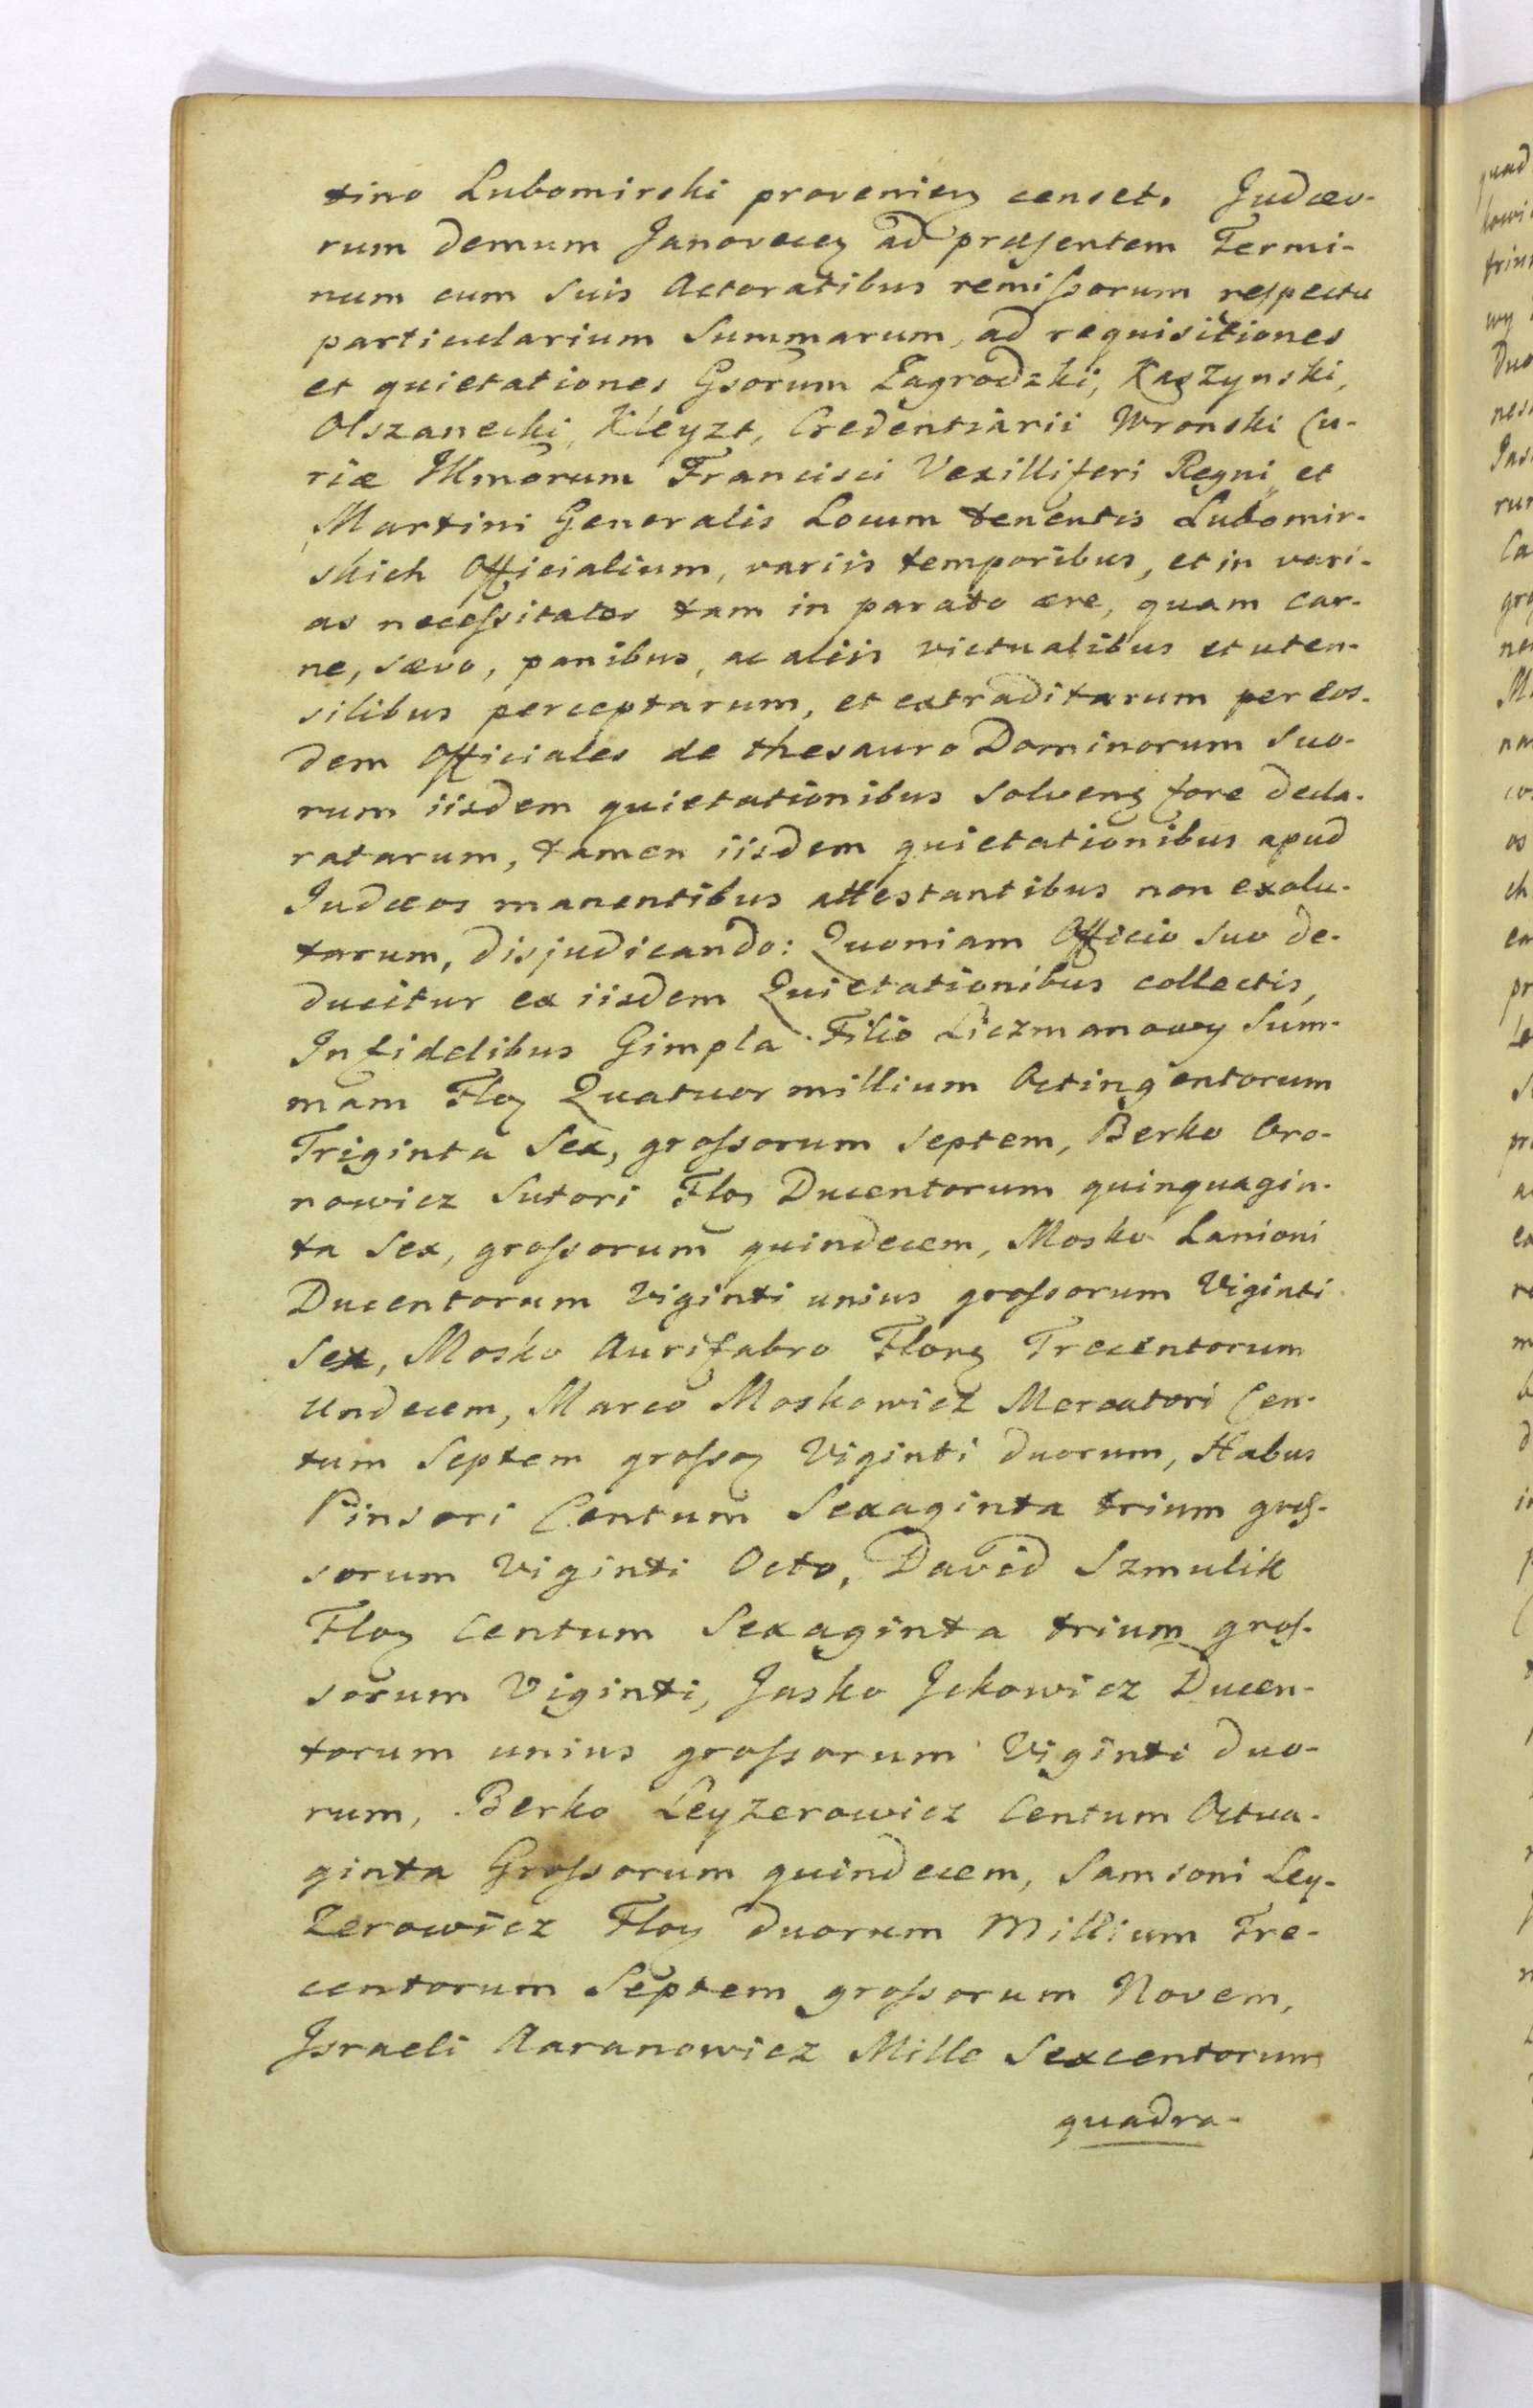 tino Lubomirski provenien censet. Judæo-
rum demum Janovecen ad præsentem Termi-
num cum suis Actoratibus remissorum respectu
particularium Summarum, ad requisitiones
et quietationes Gsorum Zagrodzki, Raszynski,
Olszanecki, Kleyzt, Credentiarii Wronski Cu-
riæ Illmorum Francisci Vexilliferi Regni et
Martini Generalis Locum tenentis Lubomir-
skich Officialium, variis temporibus, et in vari-
as necessitates tam in parato ære, quam car-
ne, sævo, panibus, ac aliis victualibus et uten-
silibus perceptarum, et extraditarum per eos-
dem Officiales de thesauro Dominorum Suo-
rum iisdem quietationibus solven fore decla-
ratarum, tamen iisdem quietationibus apud
Judæos manentibus attestantibus non exolu-
tarum, disjudicando: Quoniam Officio suo de-
ducitur ex iisdem Quietationibus collectis,
Infidelibus Gimpla Filio Liczmanowy Sum-
mam Floz Quatuor millium Octingentorum
Triginta Sex, grossorum septem, Berko Oro-
nowicz Sutori Flos Ducentorum quinquagin-
ta Sex, grossorum quindecem, Mosko Lanioni
Ducentorum Viginti unius grossorum Viginti
Sex, Mosko Aurifabro Floren Trecentorum
Undecem, Marco Moskowicz Mercatori Cen-
tum Septem grossoz Viginti duorum, Habus
Pinsori Centum Sexaginta trium gros-
sorum Viginti Octo, David Szmulik
Floz Centum Sexaginta trium gros-
sorum Viginti, Jasko Jckowicz Ducen-
torum unius grossorum Viginti duo-
rum, Berko Leyzerowicz Centum Octua-
ginta Grossorum quindecem, Samsoni Ley-
zerowicz Floz duorum Millium Tre-
centorum Septem grossorum Novem,
Israeli Aaranowicz Mille Sexcentorum
quadra-